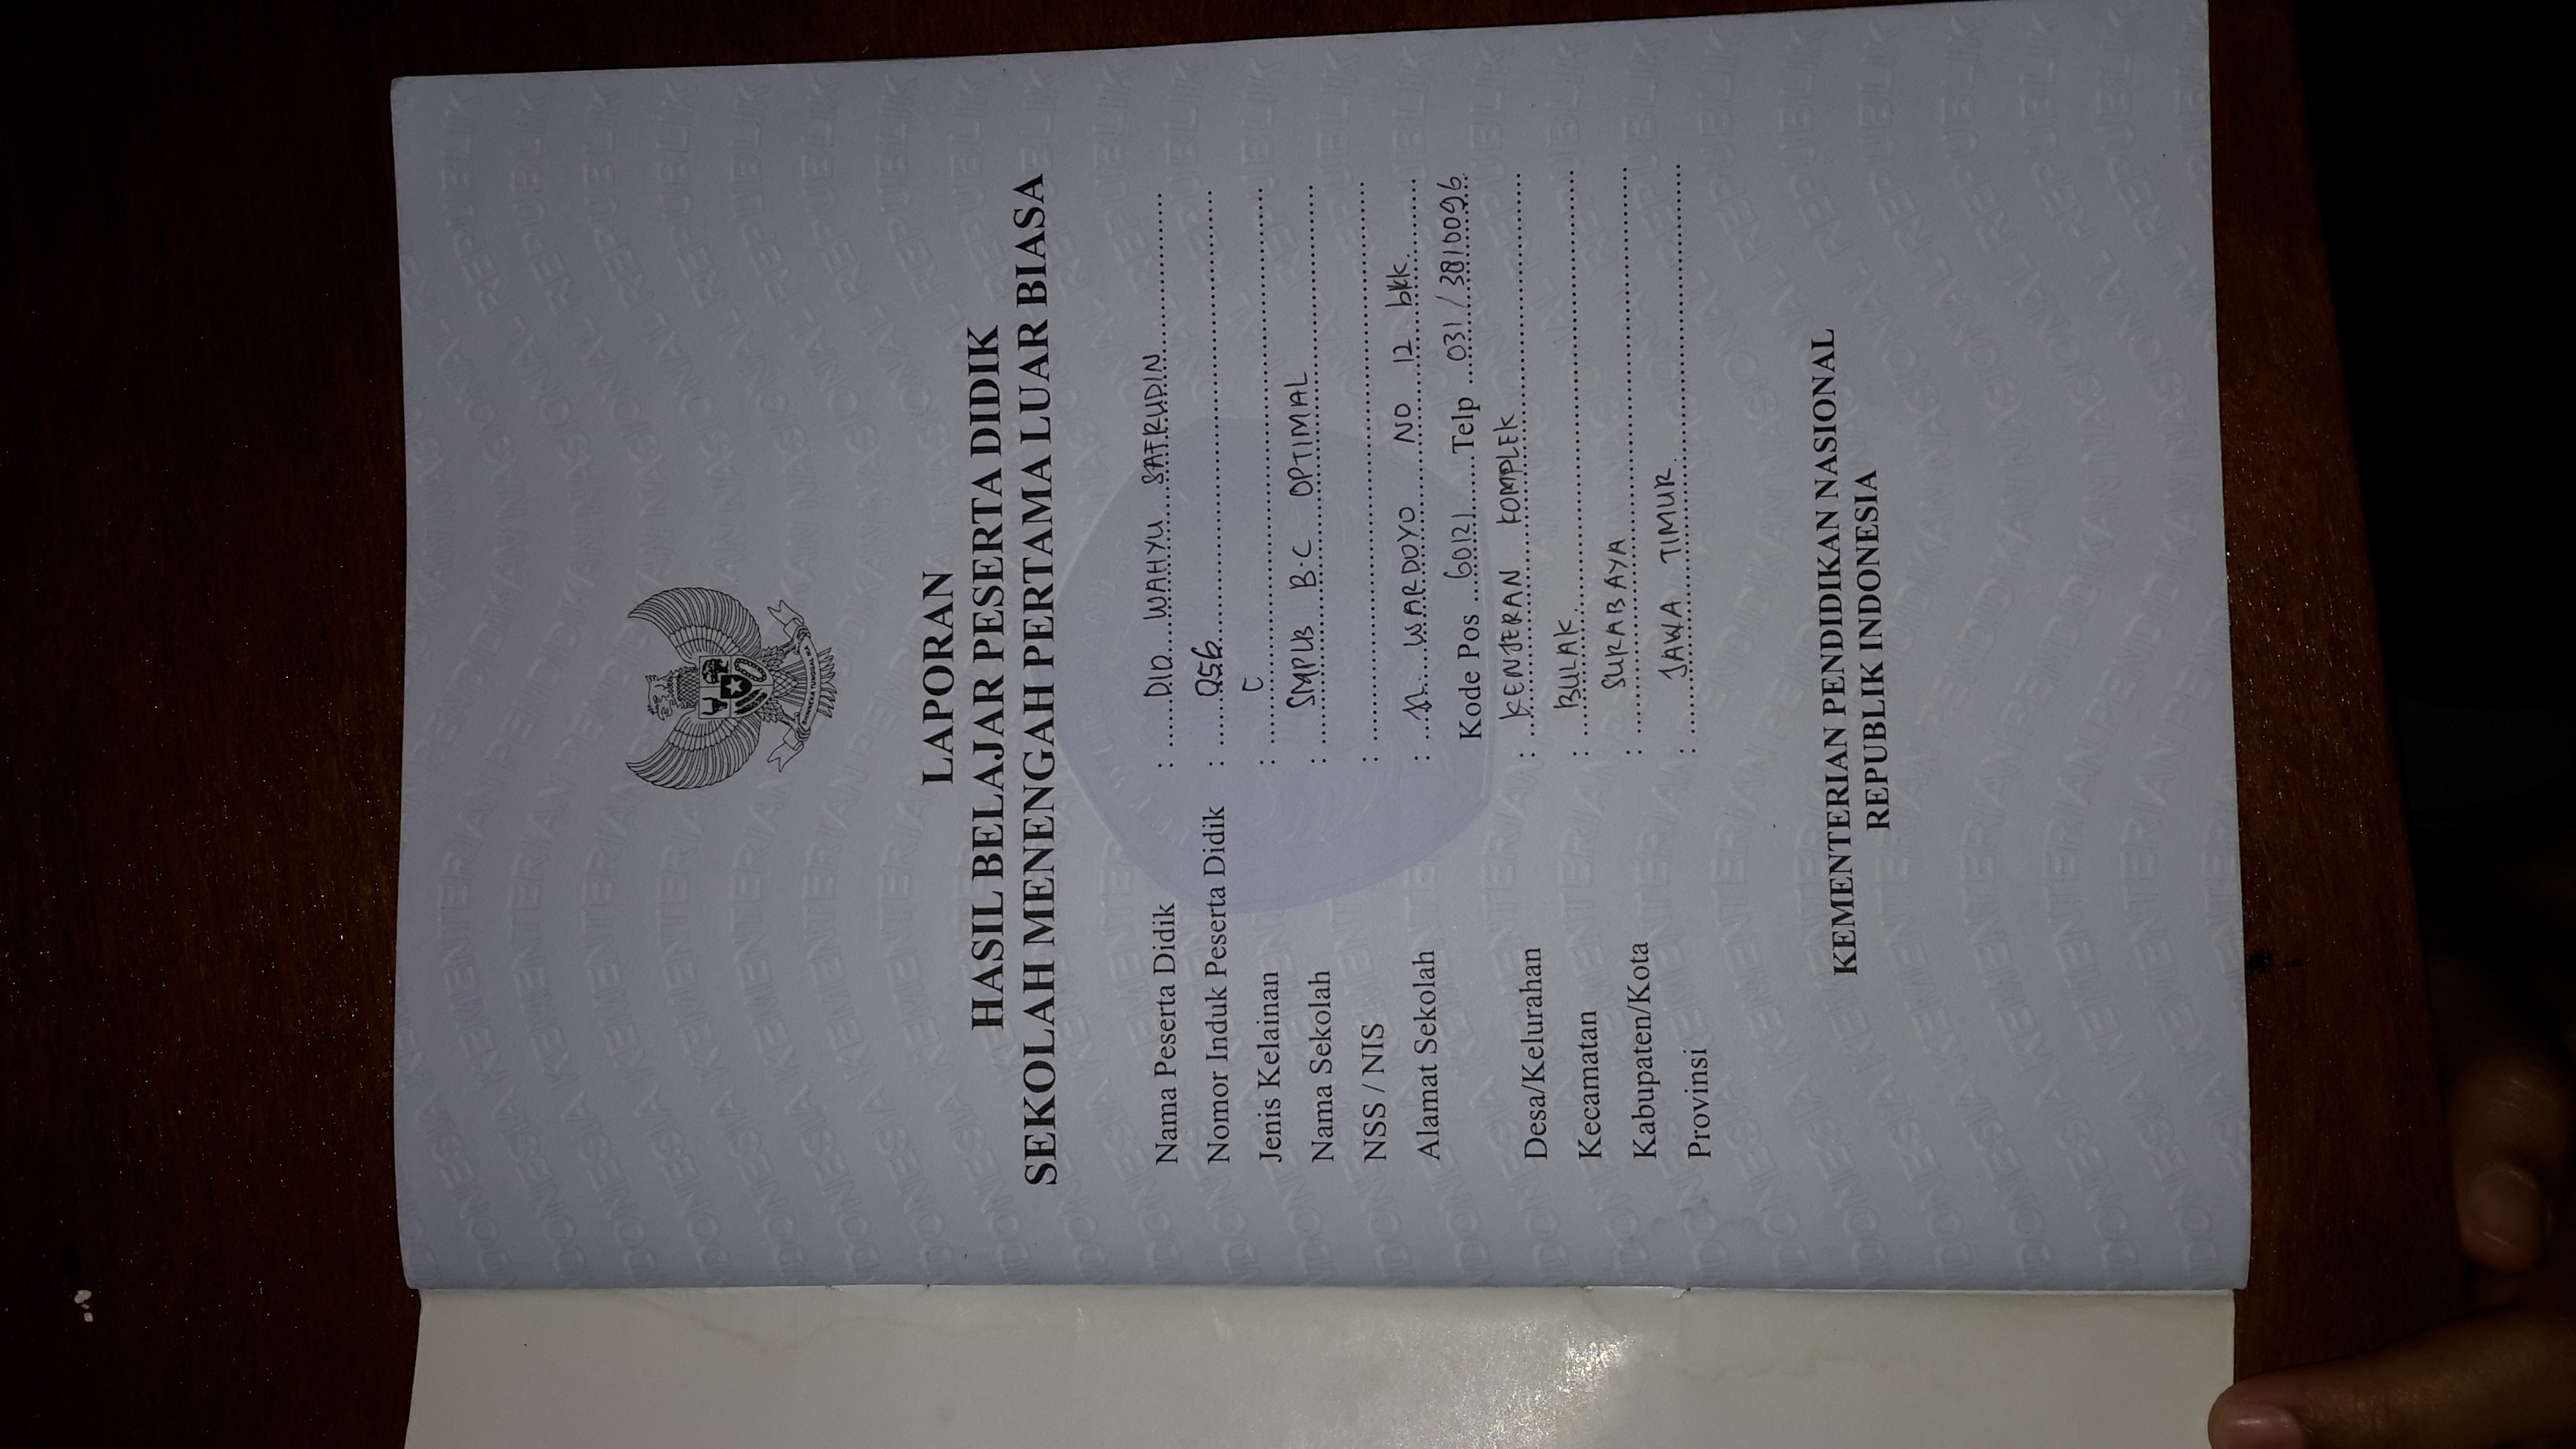 BHINNEKA TUNGGAL IKA
LAPORAN
HASIL BELAJAR PESERTA DIDIK
SEKOLAH MENENGAH PERTAMA LUAR BIASA
Nama Peserta Didik : DIO WAHYU SAFRUDIN
Nomor Induk Peserta Didik : 056
Jenis Kelainan : C
Nama Sekolah : SMPLB B-C OPTIMAL
NSS / NIS :
Alamat Sekolah : Jl WARDOYO NO 12 bkk
Kode Pos 60121 Telp 031 / 3810096
Desa/Kelurahan : KENJERAN KOMPLEK
Kecamatan : BULAK
Kabupaten/Kota : SURABAYA
Provinsi : JAWA TIMUR
KEMENTERIAN PENDIDIKAN NASIONAL
REPUBLIK INDONESIA